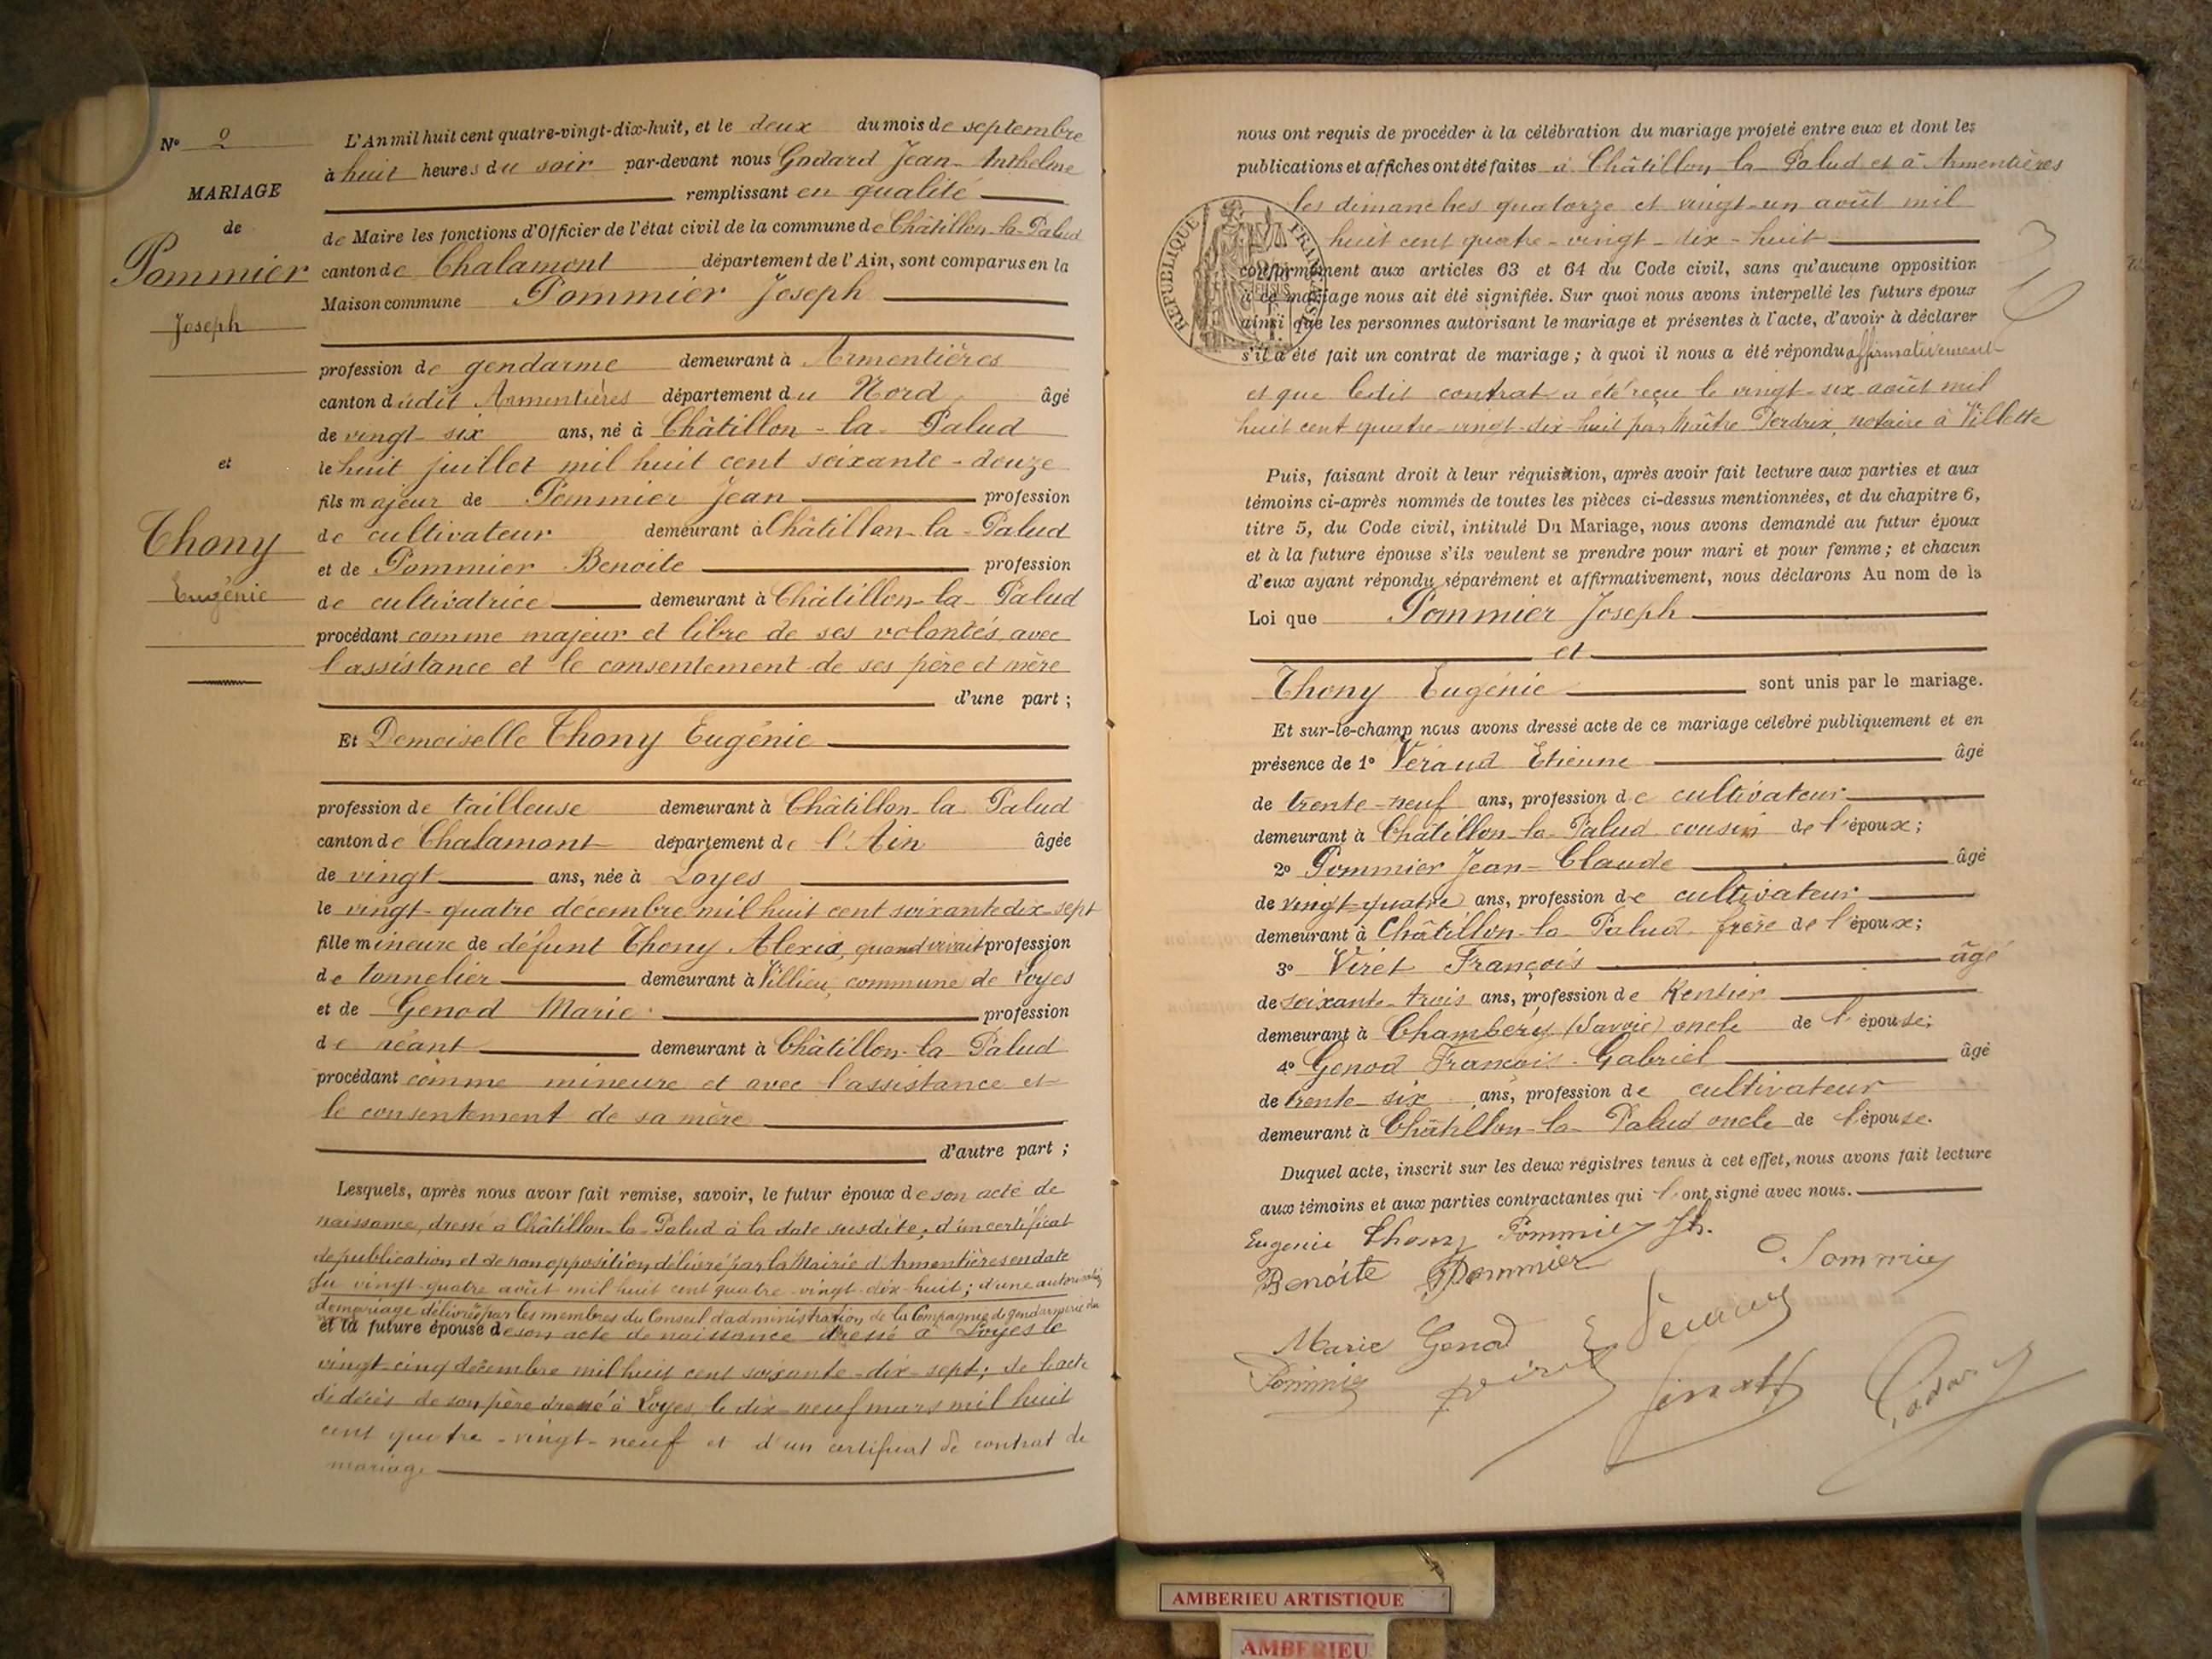 N° 2
MARIAGE
de
Pommier
Joseph
et
Thony
Eugénie
L'An mil huit cent quatre-vingt-dix-huit, et le deux du mois de septembre
à huit heures du soir par-devant nous Godard Jean-Anthelme
remplissant en qualité
de Maire les fonctions d'Officier de l'état civil de la commune de Châtillon-la-Palud
canton de Chalamont département de l'Ain, sont comparus en la
Maison commune Pommier Joseph
profession de gendarme demeurant à Armentières
canton dudit Armentières département du Nord âgé
de vingt-six ans, né à Châtillon-la-Palud
le huit juillet mil huit cent soixante-douze
fils majeur de Pommier Jean profession
de cultivateur demeurant à Châtillon-la-Palud
et de Pommier Benoite profession
de cultivatrice demeurant à Châtillon-la-Palud
procédant comme majeur et libre de ses volontés, avec
l'assistance et le consentement de ses père et mère
d'une part ;
Et Demoiselle Thony Eugénie
profession de tailleuse demeurant à Châtillon-la-Palud
canton de Chalamont département de l'Ain âgée
de vingt ans, née à Loyes
le vingt-quatre décembre mil huit cent soixante dix-sept
fille mineure de défunt Thony Alexis, quand vivait profession
de tonnelier demeurant à Villieu, commune de Loyes
et de Genod Marie profession
de néant demeurant à Châtillon-la-Palud
procédant comme mineure et avec l'assistance et
le consentement de sa mère
d'autre part ;
Lesquels, après nous avoir fait remise, savoir, le futur époux de son acte de
naissance, dressé à Châtillon-la-Palud à la date susdite; d'un certificat
de publication et de non opposition délivré par la Mairie d'Armentières en date
du vingt-quatre août mil huit cent quatre-vingt-dix-huit; d'une autorisation
de mariage délivrée par les membres du Conseil d'administration de la Compagnie de gendarmerie du
et la future épouse de son acte de naissance dressé à Loyes le
vingt-cinq décembre mil huit cent soixante-dix-sept; de l'acte
de décès de son père dressé à Loyes le dix-neuf mars mil huit
cent quatre-vingt-neuf et d'un certificat de contrat de
mariage
nous ont requis de procéder à la célébration du mariage projeté entre eux et dont les
publications et affiches ont été faites à Châtillon-la-Palud et à Armentières
les dimanches quatorze et vingt-un août mil
huit cent quatre-vingt-dix-huit
RÉPUBLIQUE FRANÇAISE
conformément aux articles 63 et 64 du Code civil, sans qu'aucune opposition
à ce mariage nous ait été signifiée. Sur quoi nous avons interpellé les futurs époux
ainsi que les personnes autorisant le mariage et présentes à l'acte, d'avoir à déclarer
s'il a été fait un contrat de mariage ; à quoi il nous a été répondu affirmativement
et que ledit contrat a été reçu le vingt-six août mil
huit cent quatre-vingt-dix-huit par Maître Perdrix, notaire à Villette
Puis, faisant droit à leur réquisition, après avoir fait lecture aux parties et aux
témoins ci-après nommés de toutes les pièces ci-dessus mentionnées, et du chapitre 6,
titre 5, du Code civil, intitulé Du Mariage, nous avons demandé au futur époux
et à la future épouse s'ils veulent se prendre pour mari et pour femme ; et chacun
d'eux ayant répondu séparément et affirmativement, nous déclarons Au nom de la
Loi que Pommier Joseph
et
Thony Eugénie sont unis par le mariage.
Et sur-le-champ nous avons dressé acte de ce mariage célébré publiquement et en
présence de 1° Véraud Etienne âgé
de trente-neuf ans, profession de cultivateur
demeurant à Châtillon-la-Palud cousin de l'époux ;
2° Pommier Jean-Claude âgé
de vingt-quatre ans, profession de cultivateur
demeurant à Châtillon-la-Palud frère de l'époux ;
3° Viret François âgé
de soixante-trois ans, profession de Rentier
demeurant à Chambéry (Savoie) oncle de l'épouse ;
4° Genod François-Gabriel âgé
de trente-six ans, profession de cultivateur
demeurant à Châtillon-la-Palud oncle de l'épouse.
Duquel acte, inscrit sur les deux registres tenus à cet effet, nous avons fait lecture
aux témoins et aux parties contractantes qui l'ont signé avec nous.
Eugenie Thony Pommier Jh.
Benoite Pommier
Pommier
Marie Genod
E Veraud
Pommier
Viret
Godard
AMBERIEU ARTISTIQUE
AMBERIEU